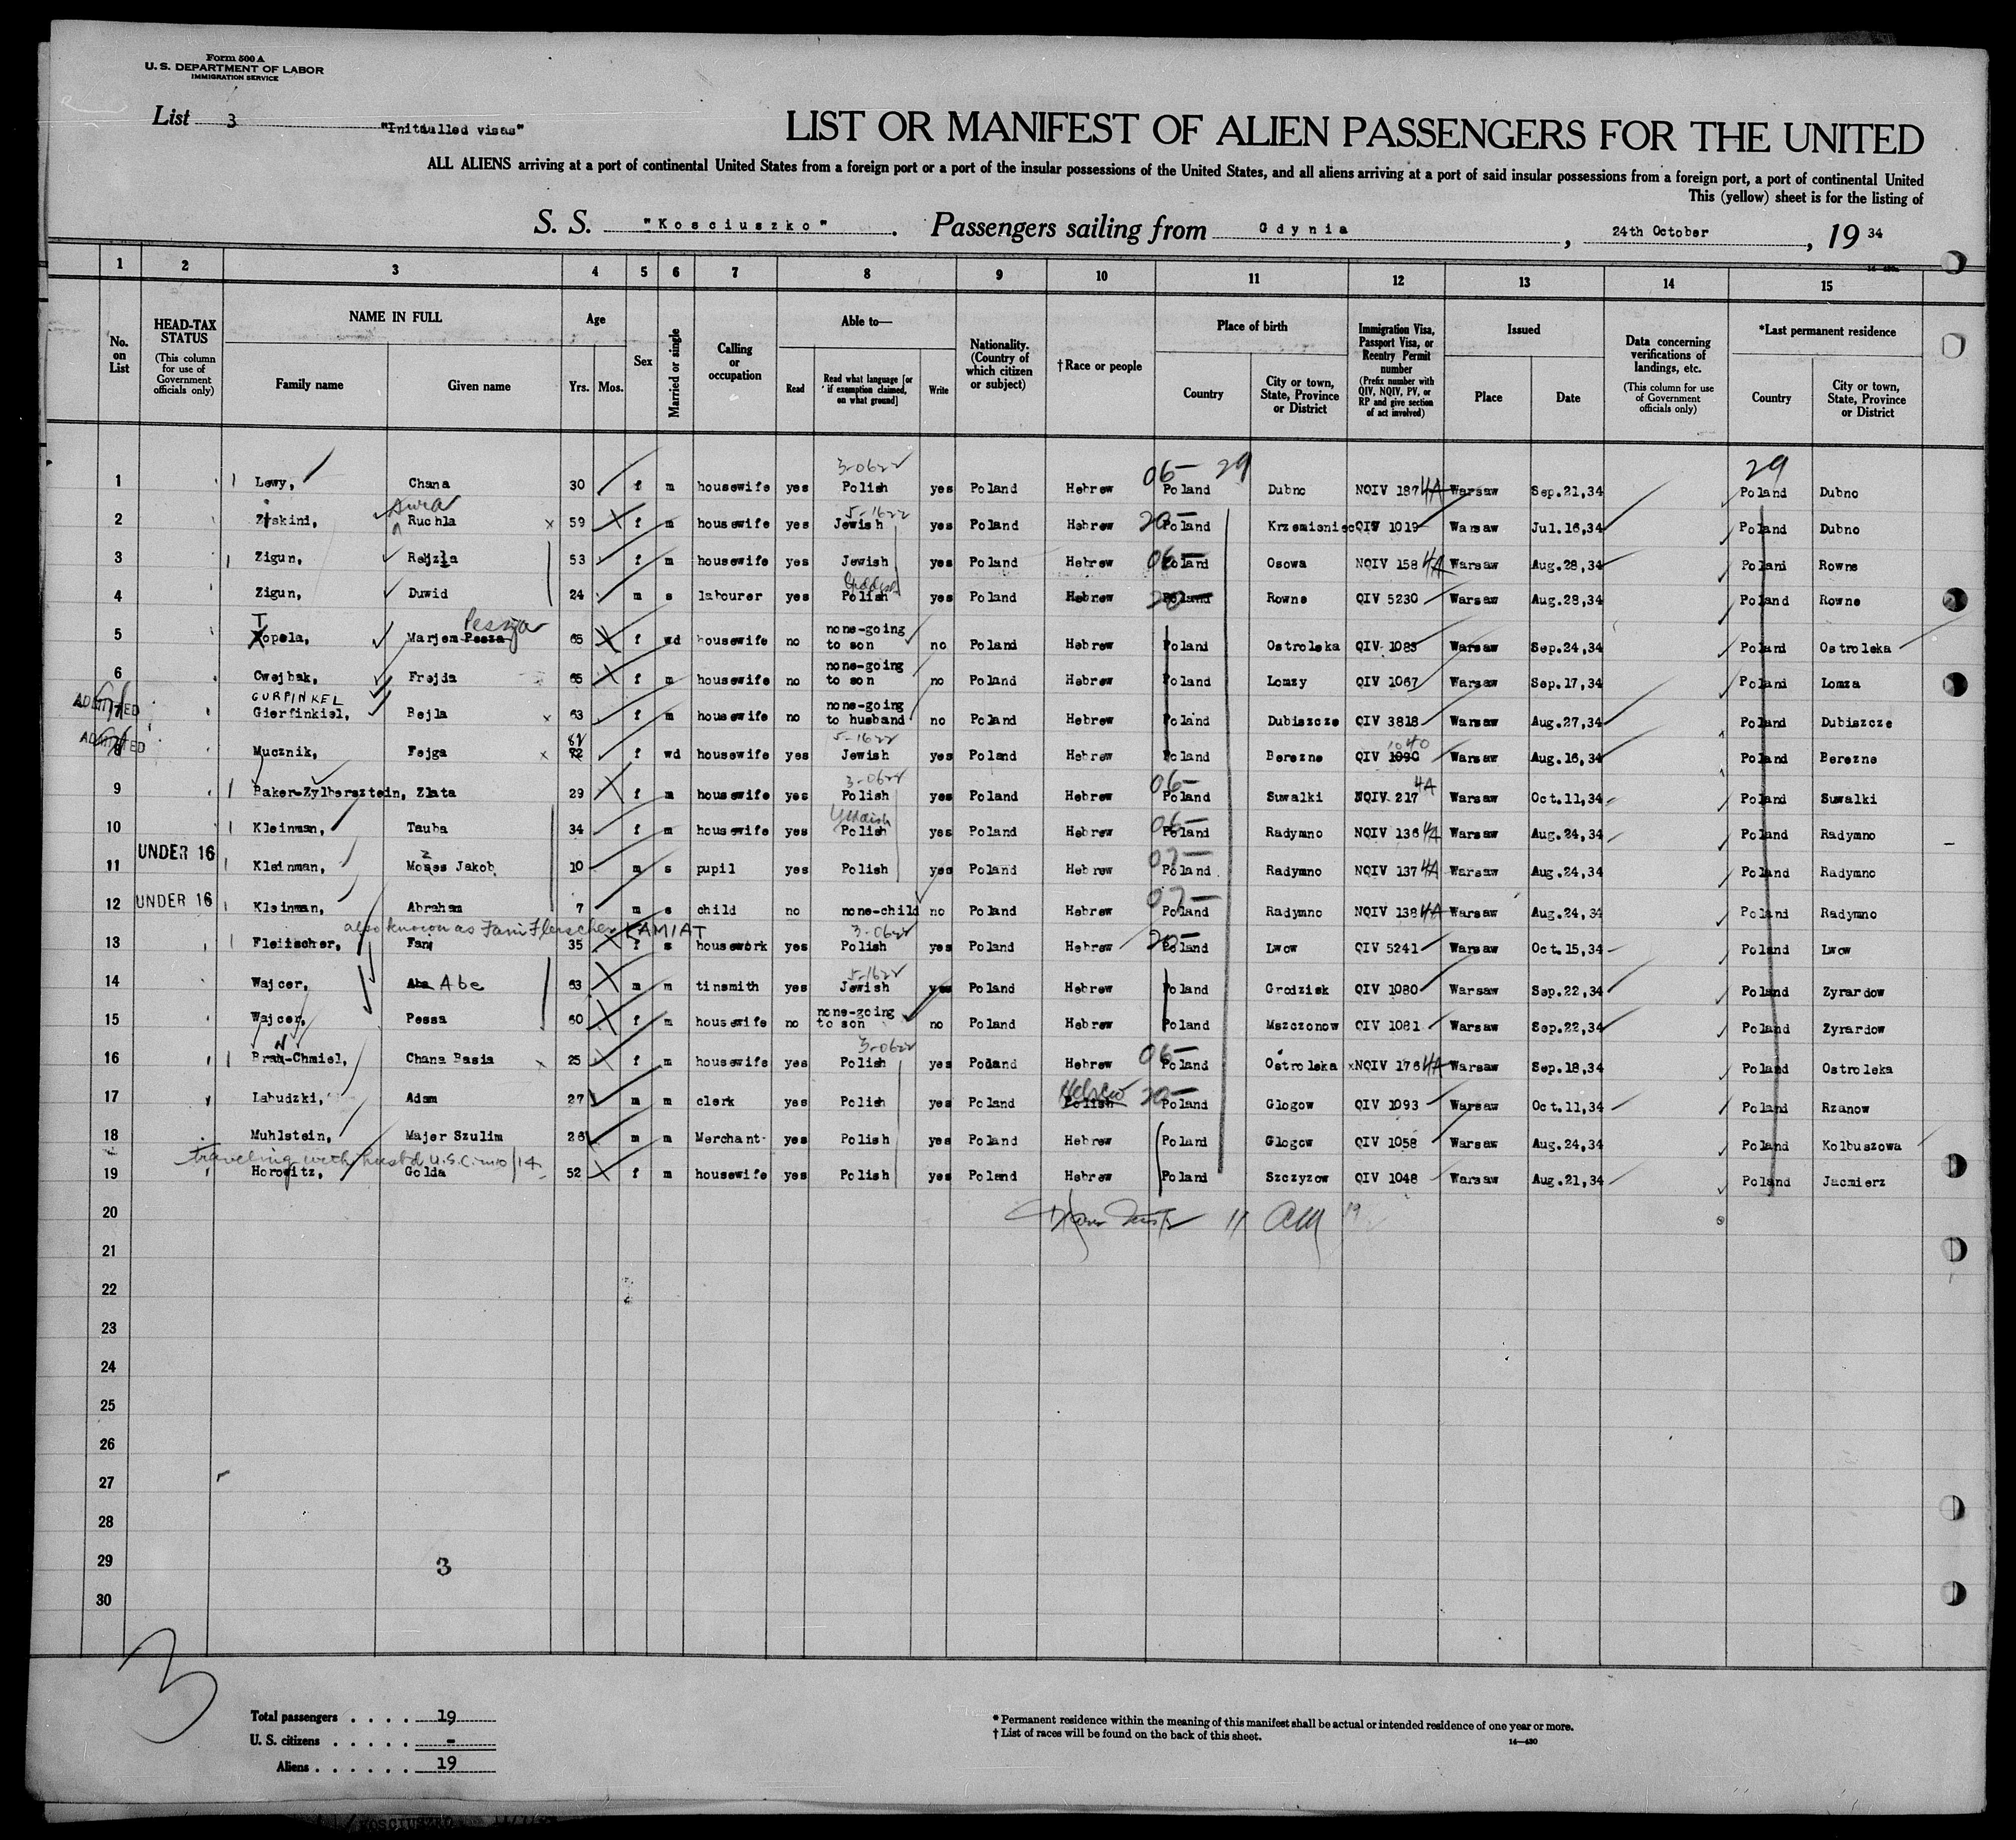 Form 500 A
U. S. DEPARTMENT OF LABOR
IMMIGRATION SERVICE
List 3 "Initiulled visas"
LIST OR MANIFEST OF ALIEN PASSENGERS FOR THE UNITED
ALL ALIENS arriving at a port of continental United States from a foreign port or a port of the insular possessions of the United States, and all aliens arriving at a port of said insular possessions from a foreign port, a port of continental United
This (yellow) sheet is for the listing of
S. S. "Kosciuszko". Passengers sailing from Gdynia, 24th October, 19 34
1 2 3 4 5 6 7 8 9 10 11 12 13 14 15
No. on List
HEAD-TAX STATUS (This column for use of Government officials only)
NAME IN FULL Family name Given name
Age Yrs. Mos.
Sex
Married or single
Calling or occupation
Able to— Read Read what language [or if exemption claimed, on what ground] Write
Nationality. (Country of which citizen or subject)
†Race or people
Place of birth Country City or town, State, Province or District
Immigration Visa, Passport Visa, or Reentry Permit number (Prefix number with QIV, NQIV, PV, or RP and give section of act involved)
Issued Place Date
Data concerning verifications of landings, etc. (This column for use of Government officials only)
*Last permanent residence Country City or town, State, Province or District
3-0622 06- 29 29
1 Lewy, Chana 30 f m housewife yes Polish yes Poland Hebrew Poland Dubno NQIV 187 4A Warsaw Sep.21,34 Poland Dubno
Sura 5-1622
2 Ruchla 59 f m housewife yes Jewish yes Poland Hebrew 20- Poland QIV 1019 Warsaw Jul.16,34 Poland Dubno
3 Zigun, Rejzla 53 f m housewife yes Jewish yes Poland Hebrew 06- Poland Osowa NQIV 158 4A Warsaw Aug.28,34 Poland Rowne
Yiddish
4 Zigun, Duwid 24 m s labourer yes Polish yes Poland Hebrew 20- Poland Rowne QIV 5230 Warsaw Aug.28,34 Poland Rowne
T Pessja
5 Xopela, Marjem Pesza 65 f wd housewife no none-going to son no Poland Hebrew Poland Ostroleka QIV 1085 Warsaw Sep.24,34 Poland Ostroleka
6 Cwejbak, Frejda 65 f m housewife no none-going to son no Poland Hebrew Poland Lomzy QIV 1067 Warsaw Sep.17,34 Poland Lomza
ADMITTED GURPINKEL
7 Gierfinkiel, Bejla 63 f m housewife no none-going to husband no Poland Hebrew Poland Dubiszcze QIV 3818 Warsaw Aug.27,34 Poland Dubiszcze
ADMITTED 62 5-1622 1040
8 Mucznik, Fejga 72 f wd housewife yes Jewish yes Poland Hebrew Poland Berezne QIV 1090 Warsaw Aug.16,34 Poland Berezne
3-0622
9 Baker-Zylbersztein, Zlata 29 f m housewife yes Polish yes Poland Hebrew 06- Poland Suwalki NQIV 217 4A Warsaw Oct.11,34 Poland Suwalki
Yiddish
10 Kleinman, Tauba 34 f m housewife yes Polish yes Poland Hebrew 06- Poland Radymno NQIV 136 4A Warsaw Aug.24,34 Poland Radymno
UNDER 16 z
11 Kleinman, Moses Jakob 10 m s pupil yes Polish yes Poland Hebrew 07- Poland Radymno NQIV 137 4A Warsaw Aug.24,34 Poland Radymno
12 UNDER 16 Kleinman, Abraham 7 m s child no none-child no Poland Hebrew 07- Poland Radymno NQIV 138 4A Warsaw Aug.24,34 Poland Radymno
also known as Fani Fleischer KAMIAT 3-0622
13 Fleitscher, Fani 35 f s housework yes Polish yes Poland Hebrew 20- Poland Lwow QIV 5241 Warsaw Oct.15,34 Poland Lwow
5-1622
14 Wajcer, Aba Abe 63 m m tinsmith yes Jewish yes Poland Hebrew Poland Grodzisk QIV 1080 Warsaw Sep.22,34 Poland Zyrardow
15 Wajcer, Pessa 60 f m housewife no none-going to son no Poland Hebrew Poland Mszczonow QIV 1081 Warsaw Sep.22,34 Poland Zyrardow
N 3-0622
16 Brau-Chmiel, Chana Basia 25 f m housewife yes Polish yes Podand Hebrew 06- Poland Ostroleka xNQIV 176 4A Warsaw Sep.18,34 Poland Ostroleka
Hebrew
17 Labudzki, Adam 27 m m clerk yes Polish yes Poland Polish 20- Poland Glogow QIV 1093 Warsaw Oct.11,34 Poland Rzanow
18 Muhlstein, Majer Szulim 26 m m Merchant yes Polish yes Poland Hebrew Poland Glogow QIV 1058 Warsaw Aug.24,34 Poland Kolbuszowa
traveling with husbd U.S.C. m10/14
19 Horowitz, Golda 52 f m housewife yes Polish yes Poland Hebrew Poland Szczyzow QIV 1048 Warsaw Aug.21,34 Poland Jacmierz
20 11 am
21
22
23
24
25
26
27
28
29 3
30
3
Total passengers . . . . 19
U. S. citizens . . . . . -
Aliens . . . . . . 19
* Permanent residence within the meaning of this manifest shall be actual or intended residence of one year or more.
† List of races will be found on the back of this sheet.
14—430